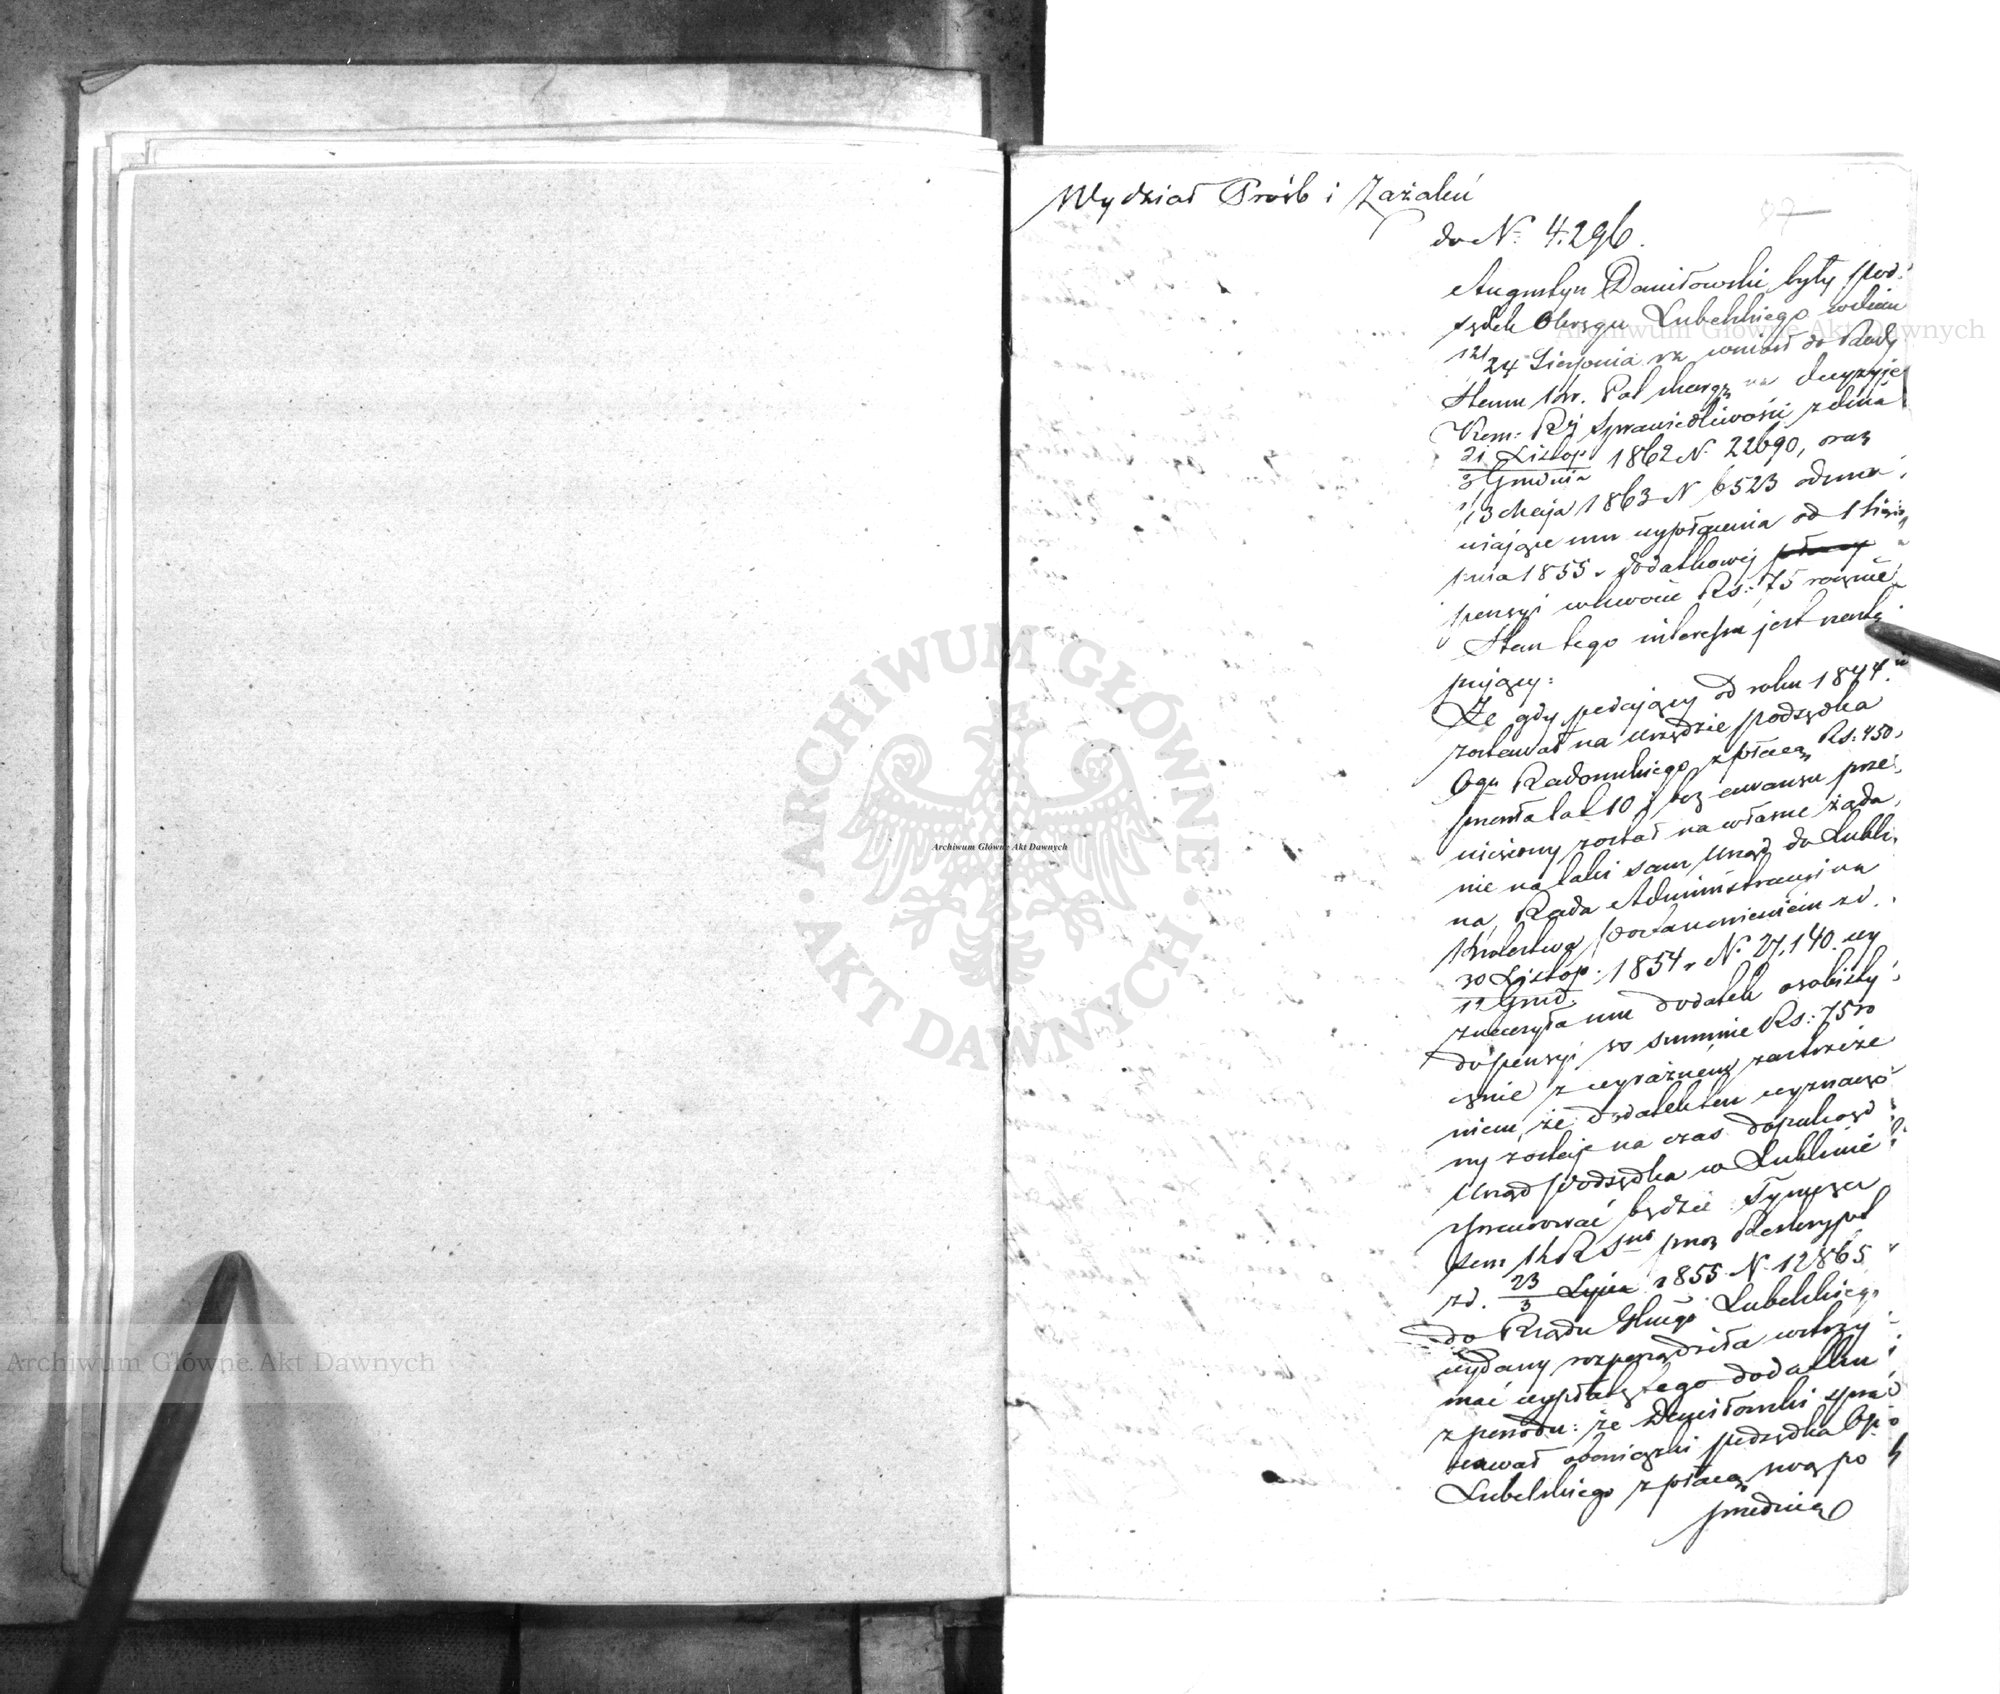 Wydział Próśb i Zażaleń
87
do N. 4,296.
Augustyn Daniłowski były Pod-
sędek Okręgu Lubelskiego w dniu
12/24 Sierpnia wniósł do Rady
Stanu Kr. Pol skargę na decyzyje
Kom: Rz Sprawiedliwości z dnia
21 Listop / 3 Grudnia 1862 N. 22690, oraz
1/13 Maja 1863 N 6523 odma-
wiające mu wypłacenia od 1 Sier-
pnia 1855 r dodatkowej
pensyi w kwocie Rs: 75 rocznie
Stan tego interessu jest nastę-
pujący:
Że gdy podający od roku 1844
zostawał na urzędzie Podsędka
Ogu Radomskiego z płacą Rs: 450,
lat 10 i bez awansu prze-
niesiony został na własne żąda-
nie na taki sam Urząd do Lubli-
na, Rada Administracyjna
Królestwa Postanowieniem z d.
30 Listop. / 12 Grud. 1854 r N. 27,140. wy
znaczyła mu dodatek osobisty
do pensyi w summie Rs: 75 ro
cznie z wyraźnem zastrzeże
niem, że dodatek ten wyznaczo
ny zostaje na czas dopokąd
Urząd Podsędka w Lublinie
sprawować będzie Tymcza
sem KRSwa przez Reskrypt
z d. 23/3 Lipca 1855 N. 12865
do Rządu Gbugo Lubelskiego
wydany rozporządziła wstrzy-
mać wypłatę tego dodatku
z powodu: że Daniłowski spra-
wował obowiązki podsędka Ogu
Lubelskiego z płacą swą po
przednią
Archiwum Główne Akt Dawnych
Archiwum Główne Akt Dawnych
Archiwum Główne Akt Dawnych
· ARCHIWUM GŁÓWNE · AKT DAWNYCH